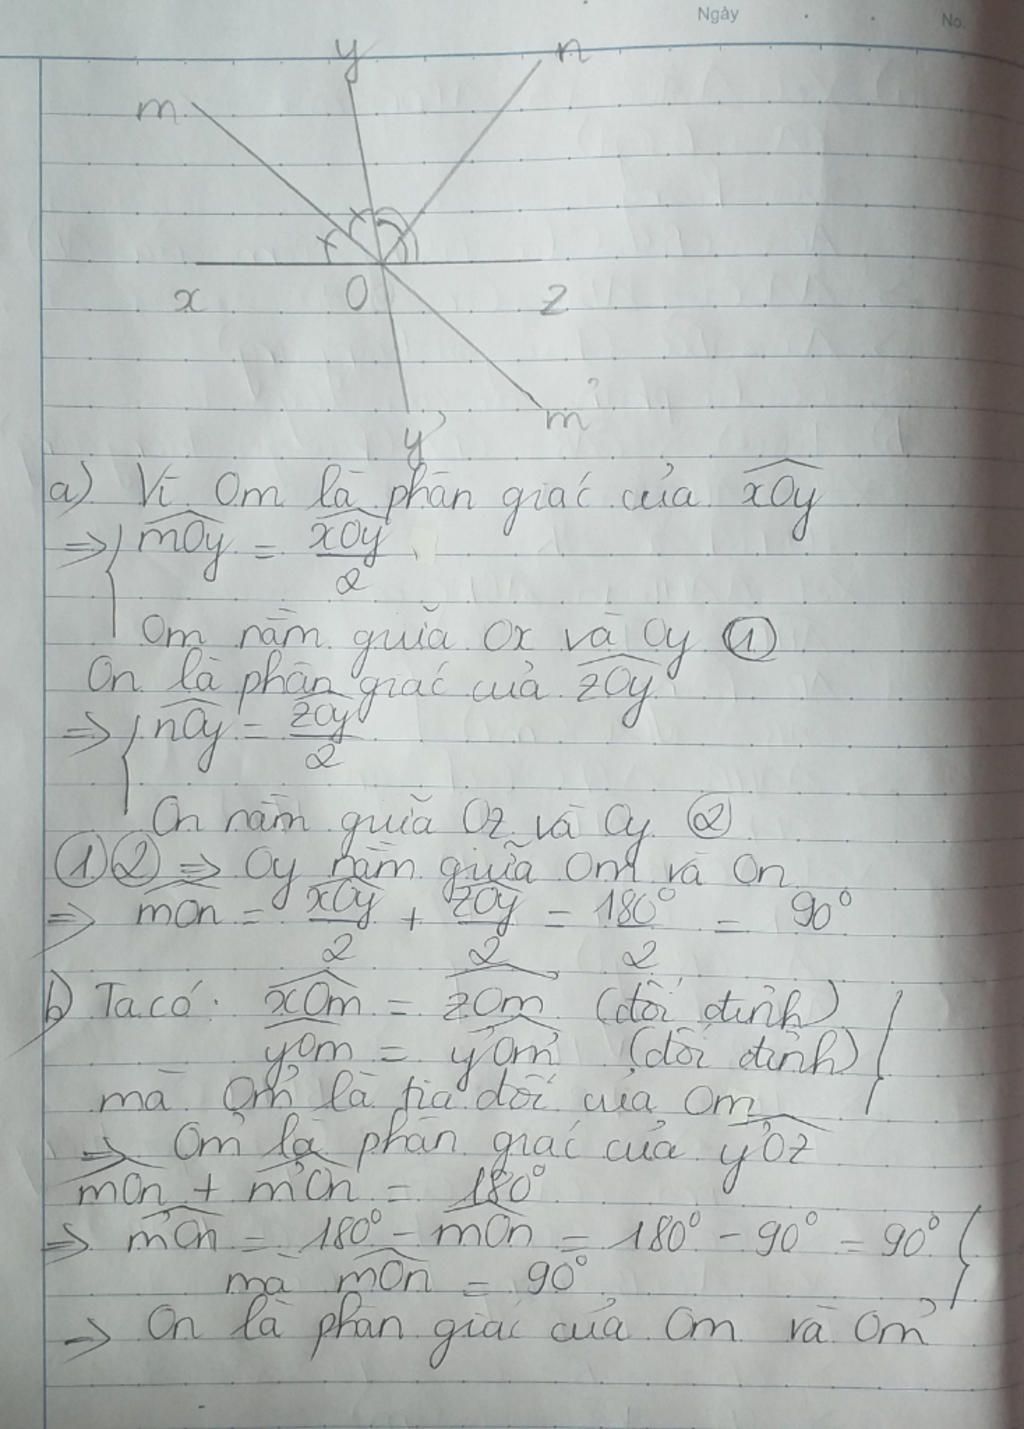 Ngày
No.
y
n
m
x
O
z
m'
y'
a) Vì Om là phân giác của xOy
=> { mOy = xOy / 2
Om nằm giữa Ox và Oy ①
On là phân giác của zOy
=> { nOy = zOy / 2
On nằm giữa Oz và Oy ②
① ② => Oy nằm giữa Om và On
=> mOn = xOy / 2 + zOy / 2 = 180° / 2 = 90°
b) Ta có: xOm = zOm' (đối đỉnh)
yOm = y'Om' (đối đỉnh) }
mà Om' là tia đối của Om
=> Om' là phân giác của y'Oz
mOn + m'On = 180°
=> m'On = 180° - mOn = 180° - 90° = 90° }
mà mOn = 90°
=> On là phân giác của Om và Om'